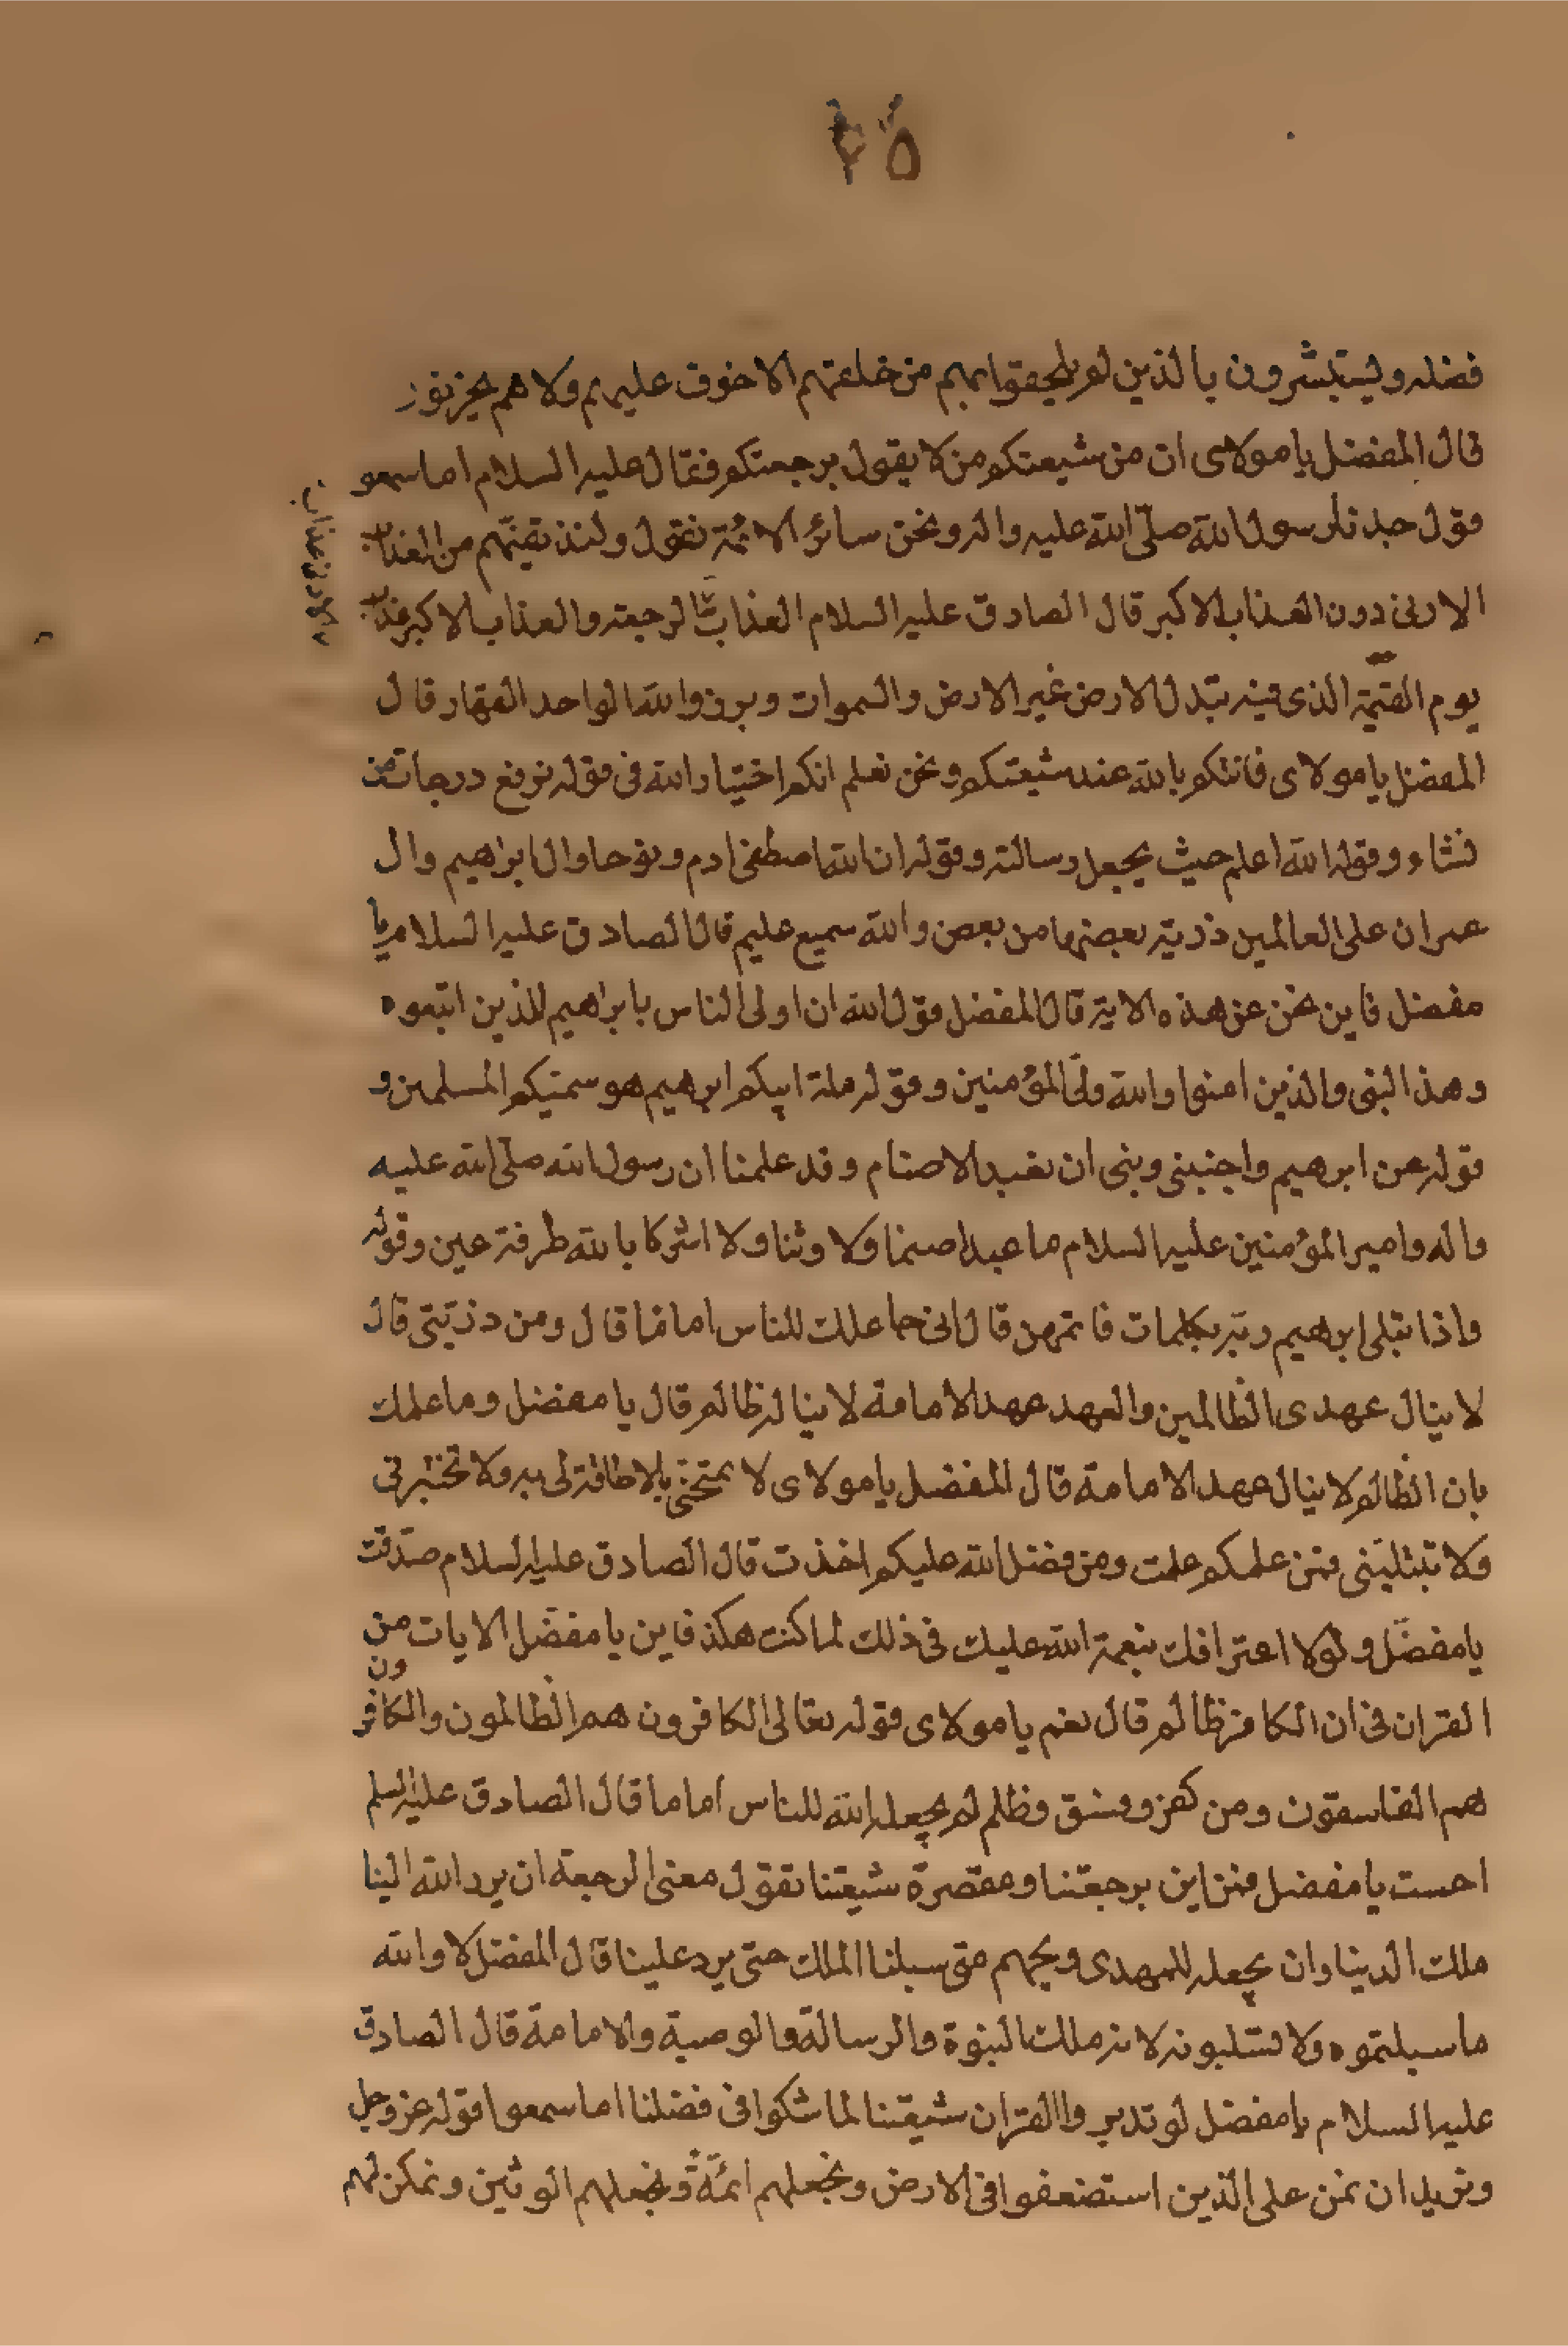 ٢٥
فضله ويستبشرون بالذين لم يلحقوا بهم من خلفهم الا خوف عليهم ولا هم يحزنون
قال المفضل يا مولاى ان من شيعتكم من لا يقول برجعتكم فقال عليه السلام اما سمعو
قول جدنا رسول الله صلّى الله عليه واله ونحن سائر الائمّة نقول ولنذيقنّهم من العذاب
الادنى دون العذاب الاكبر قال الصادق عليه السلام العذاب الرجعة والعذاب الاكبر عذاب
يوم القيمة الذى فيه تبدل الارض غير الارض والسموات وبرزوا لله الواحد القهار قال
المفضل يا مولاى فانتكم بالله عند شيعتكم ونحن نعلم انكم اختيار الله فى قوله نرفع درجات من
نشاء وقوله الله اعلم حيث يجعل رسالته وقوله ان الله اصطفى ادم ونوحا وال ابراهيم وال
عمران على العالمين ذرية بعضها من بعض والله سميع عليم قال الصادق عليه السلام يا
مفضل فاين نحن عن هذه الاية قال المفضل قول الله ان اولى الناس بابراهيم للذين اتبعوه
وهذا النبى والذين امنوا والله ولىّ المؤمنين وقوله ملة ابيكم ابرهيم هو سميكم المسلمين و
قوله عن ابرهيم واجنبنى وبنى ان نعبد الاصنام وقد علمنا ان رسول الله صلّى الله عليه
واله وامير المؤمنين عليه السلام ما عبدا صنما ولا وثنا ولا اشركا بالله طرفة عين وقوله
واذا بتلى ابرهيم ربّه بكلمات فاتمهن قال انى جاعلك للناس اماما قال ومن ذريّتى قال
لا ينال عهدى الظالمين والعهد عهد الامامة لا يناله ظالم قال يا مفضل وما علمك
بان الظالم لا ينال عهد الامامة قال المفضل يا مولاى لا تمتحنّى بلا طاقة لى به ولا تختبرنى
ولا تبتلينى فمن علمكم علمت ومن فضل الله عليكم اخذت قال الصادق عليه السلام صدقت
يا مفضّل ولولا اعترافك بنعمة الله عليك فى ذلك لما كنت هكذ فاين يا مفضّل الايات من
القران فى ان الكافر ظالم قال نعم يا مولاى قوله تعالى الكافرون هم الظالمون والكافرون
هم الفاسقون ومن كفر وفسق وظلم لم يجعله الله للناس اماما قال الصادق عليه السلم
احست يا مفضل فمن اين برجعتنا ومقصرة شيعتنا تقول معنى الرجعة ان يرد الله الينا
ملك الدينا وان يجعله للمهدى ويحهم متى سبلنا الملك حتى يرد علينا قال المفضل لا والله
ما سبلتموه ولا تستلبونه لانه ملك النبوة والرسالة والوصية والامامة قال الصادق
عليه السلام يا مفضل لو تدبر واالقران شيعتنا لما شكوا فى فضلنا اما سمعوا قوله عز وجل
ونريد ان نمن على الذين استضعفوا فى الارض ونجعلهم ائمّة ونجعلهم الوثين ونمكن لهم